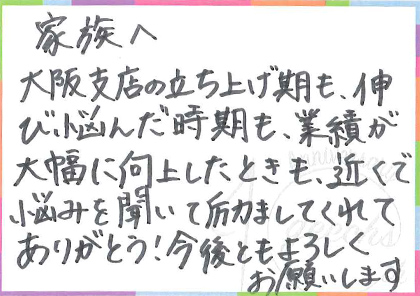 家族へ
大阪支店の立ち上げ期も、伸
び悩んだ時期も、業績が
大幅に向上したときも、近くで
悩みを聞いて励ましてくれて
ありがとう！今後ともよろしく
お願いします